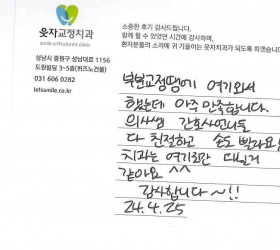 웃자교정치과
smile orthodontic clinic
성남시 중원구 성남대로 1156
도원빌딩 3~5층(위즈노리움)
031 606 0282
letssmile.co.kr
소중한 후기 감사드립니다.
함께 할 수 있었던 시간에 감사하며,
환자분들의 소리에 귀 기울이는 웃자치과가 되도록 하겠습니다
부분교정땜에 여기와서
했는데 아주 만족합니다.
의사쌤 간호사언니들
다 친절하고 손도 빨라요!
치과는 여기로만 다닐거
같아요 ^^
감사합니다~!!
24.4.25